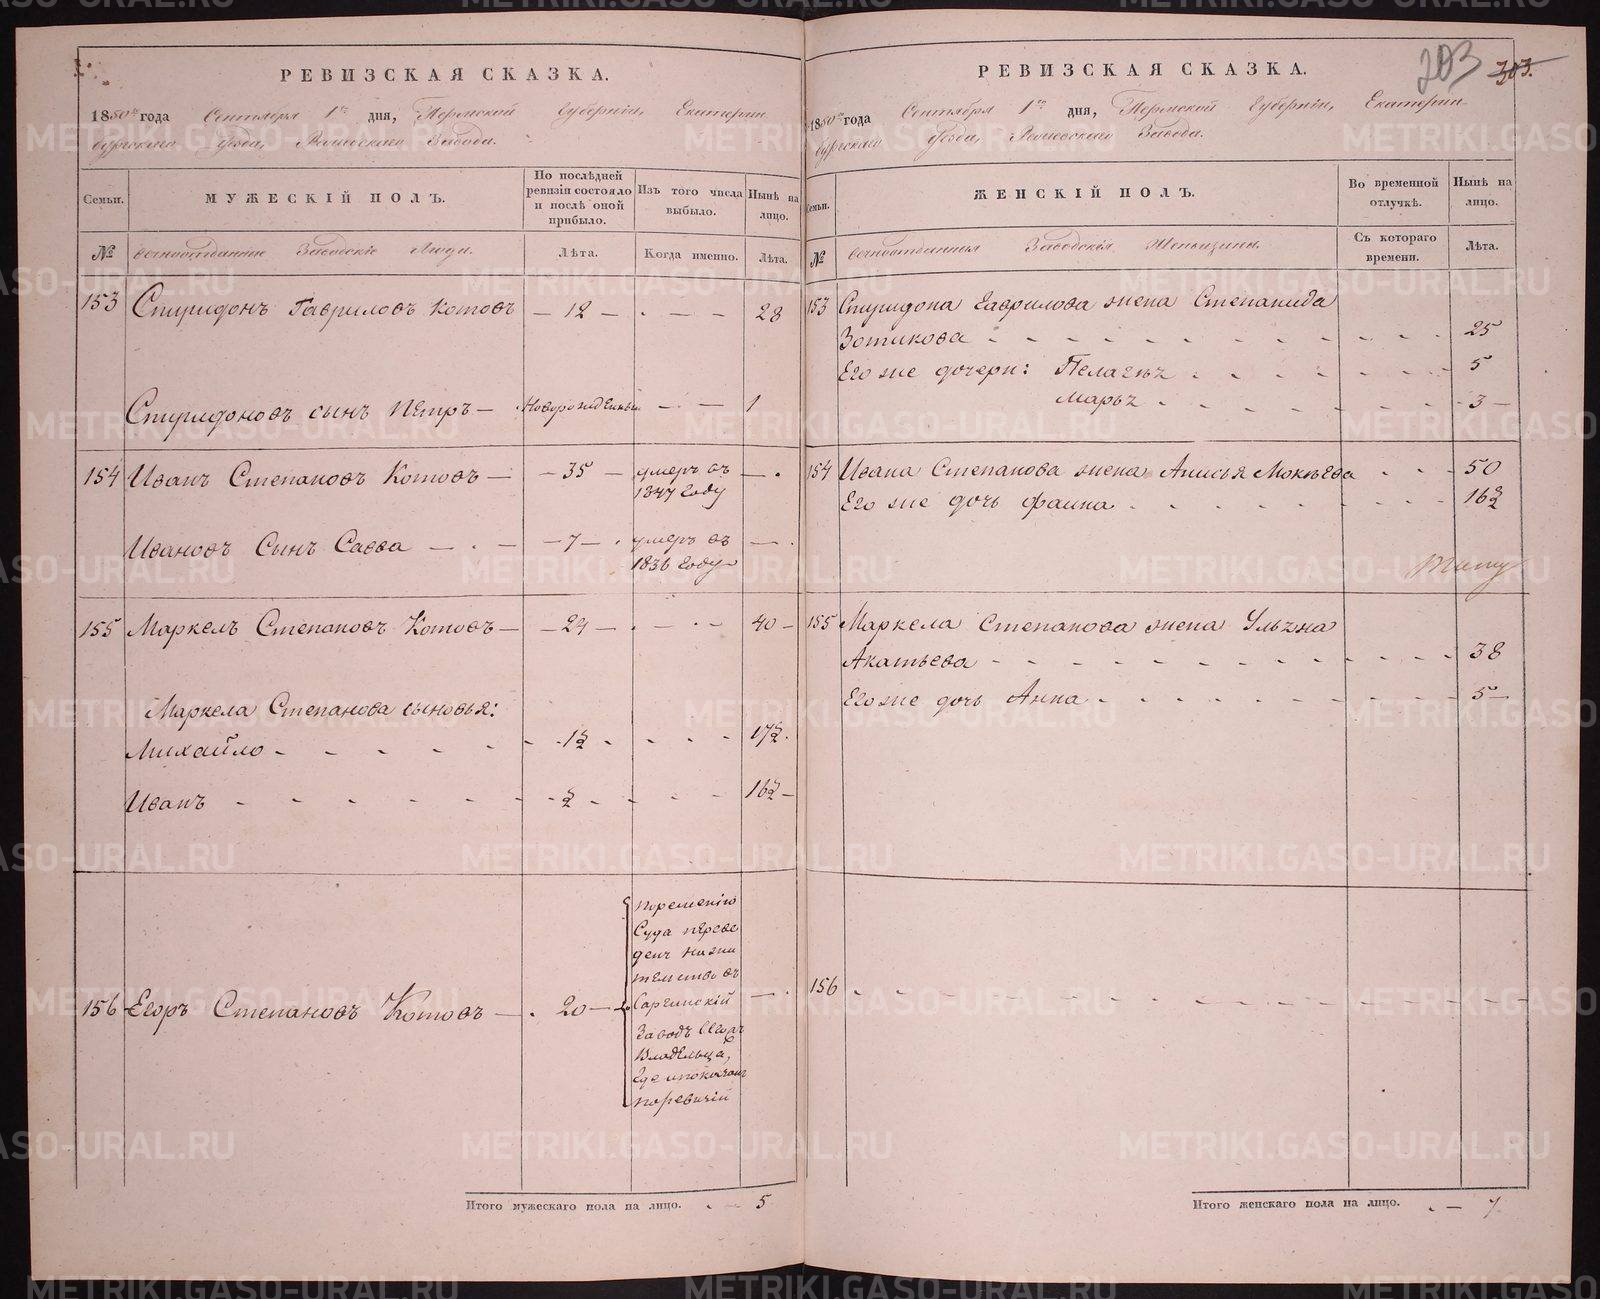 РЕВИЗСКАЯ СКАЗКА.
1850 года Сентября 1го дня, Пермской Губернии, Екатерин-
бургскаго Уезда, Завода.
Семьи.
МУЖЕСКІЙ ПОЛЪ.
По послѣдней ревизіи состояло и послѣ оной прибыло.
Изъ того числа выбыло.
Нынѣ на лицо.
№
Заводскіе Люди.
Лѣта.
Когда именно.
Лѣта.
153 Спиридонъ Гавриловъ Котовъ — 12 — . — — 28
Спиридоновъ сынъ Петръ — Новорожденный — — 1
154 Иванъ Степановъ Котовъ — — 35 — умеръ въ — .
1847 году
Ивановъ Сынъ Савва — . — — 7 — . умеръ въ — .
1836 году
155 Маркелъ Степановъ Котовъ — — 24 — . — . — 40 —
Маркела Степанова сыновья:
Михайло - - - - - - 1½ - - - - 17½.
Иванъ - - - - - - ½ - - - - 16½ —
156 Егоръ Степановъ Котовъ — . 20 —
порешенію
Суда переве
денъ нажи
тельство въ
Саргинскій
Заводъ
Владельца,
где
поревизіи
Итого мужескаго пола на лицо. . — 5
РЕВИЗСКАЯ СКАЗКА.
203 303.
1850 года Сентября 1го дня, Пермской Губерніи, Екатерин-
бургскаго Уезда, Завода.
Семьи.
ЖЕНСКІЙ ПОЛЪ.
Во временной отлучкѣ.
Нынѣ на лицо.
№
Заводскія Женьщины.
Съ котораго времени.
Лѣта.
153 Спиридона Гаврилова жена Степанида
Зотикова - - - - - - - - 25
Его же дочери: Пелагея - - - - - 5
Марья - - - - - - 3 —
154 Ивана Степанова жена Анисья Мокѣева - - - 50
Его же дочь Фаина - - - - - - - 16½
155 Маркела Степанова жена Ульяна
Акатьева - - - - - - - - 38
Его же дочь Анна - - - - - - - 5 —
156 - - - - - - - -
Итого женскаго пола на лицо. . — 7.
METRIKI.GASO-URAL.RU